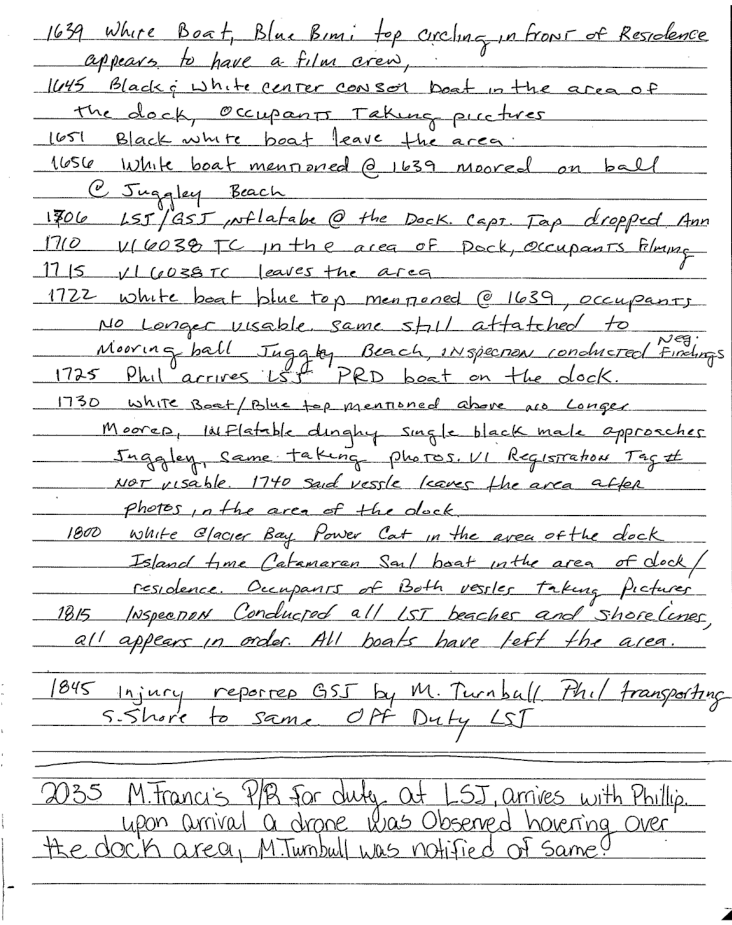 1639 White Boat, Blue Bimi top circling in front of Residence
appears to have a film crew,
1645 Black & White center consol boat in the area of
the dock, Occupants Taking picctures
1651 Black white boat leave the area.
1656 White boat mentioned @ 1639 moored on ball
@ Juggley Beach
1706 LSJ/GSJ inflatabe @ the Dock. Capt. Tap dropped Ann
1710 VI 6038 TC in the area of Dock, Occupants filming
1715 VI 6038 TC leaves the area
1722 White boat blue top mentioned @ 1639, occupants
NO Longer visable. same still attatched to
Mooring ball Juggley Beach, inspection conducted Neg. Findings
1725 Phil arrives LSJ PRD boat on the dock.
1730 White Boat/Blue top mentioned above no Longer
Moored, inflatable dinghy single black male approaches
Juggley, same taking photos. VI Registration Tag #
NOT visable. 1740 said vessle leaves the area after
photos in the area of the dock
1800 White Glacier Bay Power Cat in the area of the dock
Island time Catamaran Sail boat in the area of dock/
residence. Occupants of Both vessles taking Pictures
1815 Inspection Conducted all LSJ beaches and shorelines,
all appears in order. All boats have left the area.
1845 Injury reported GSJ by M. Turnbull Phil transporting
S. Shore to same. Off Duty LSJ
2035 M. Francis P/R for duty at LSJ, arrives with Phillip.
upon arrival a drone was Observed hovering over
the dock area, M. Turnbull was notified of same.